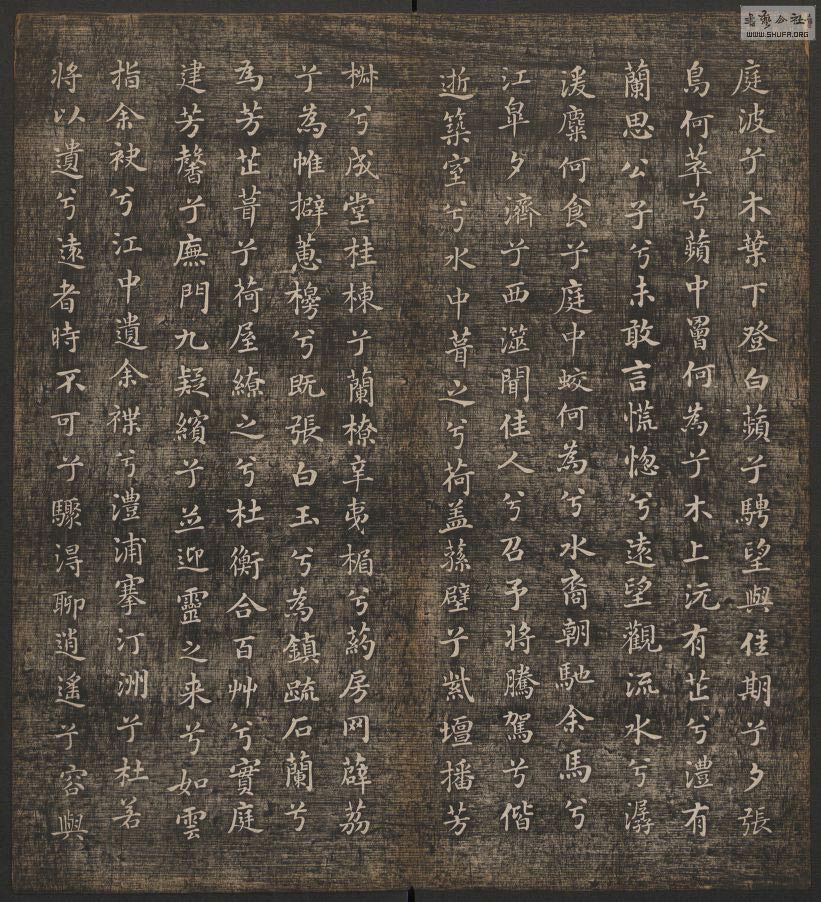 庭波兮木葉下登白蘋兮騁望與佳期兮夕張
鳥何萃兮蘋中罾何為兮木上沅有芷兮澧有
蘭思公子兮未敢言慌惚兮遠望觀流水兮潺
湲麋何食兮庭中蛟何為兮水裔朝馳余馬兮
江皐夕濟兮西澨聞佳人兮召予將騰駕兮偕
逝築室兮水中葺之兮荷盖蓀壁兮紫壇播芳
椒兮成堂桂棟兮蘭橑辛夷楣兮葯房网薜荔
兮為帷擗蕙櫋兮既張白玉兮為鎮疏石蘭兮
為芳芷葺兮荷屋繚之兮杜衡合百艸兮實庭
建芳馨兮廡門九疑繽兮並迎靈之来兮如雲
指余袂兮江中遺余褋兮澧浦搴汀洲兮杜若
将以遺兮遠者時不可兮驟淂聊逍遙兮容與
書藝公社
WWW.SHUFA.ORG